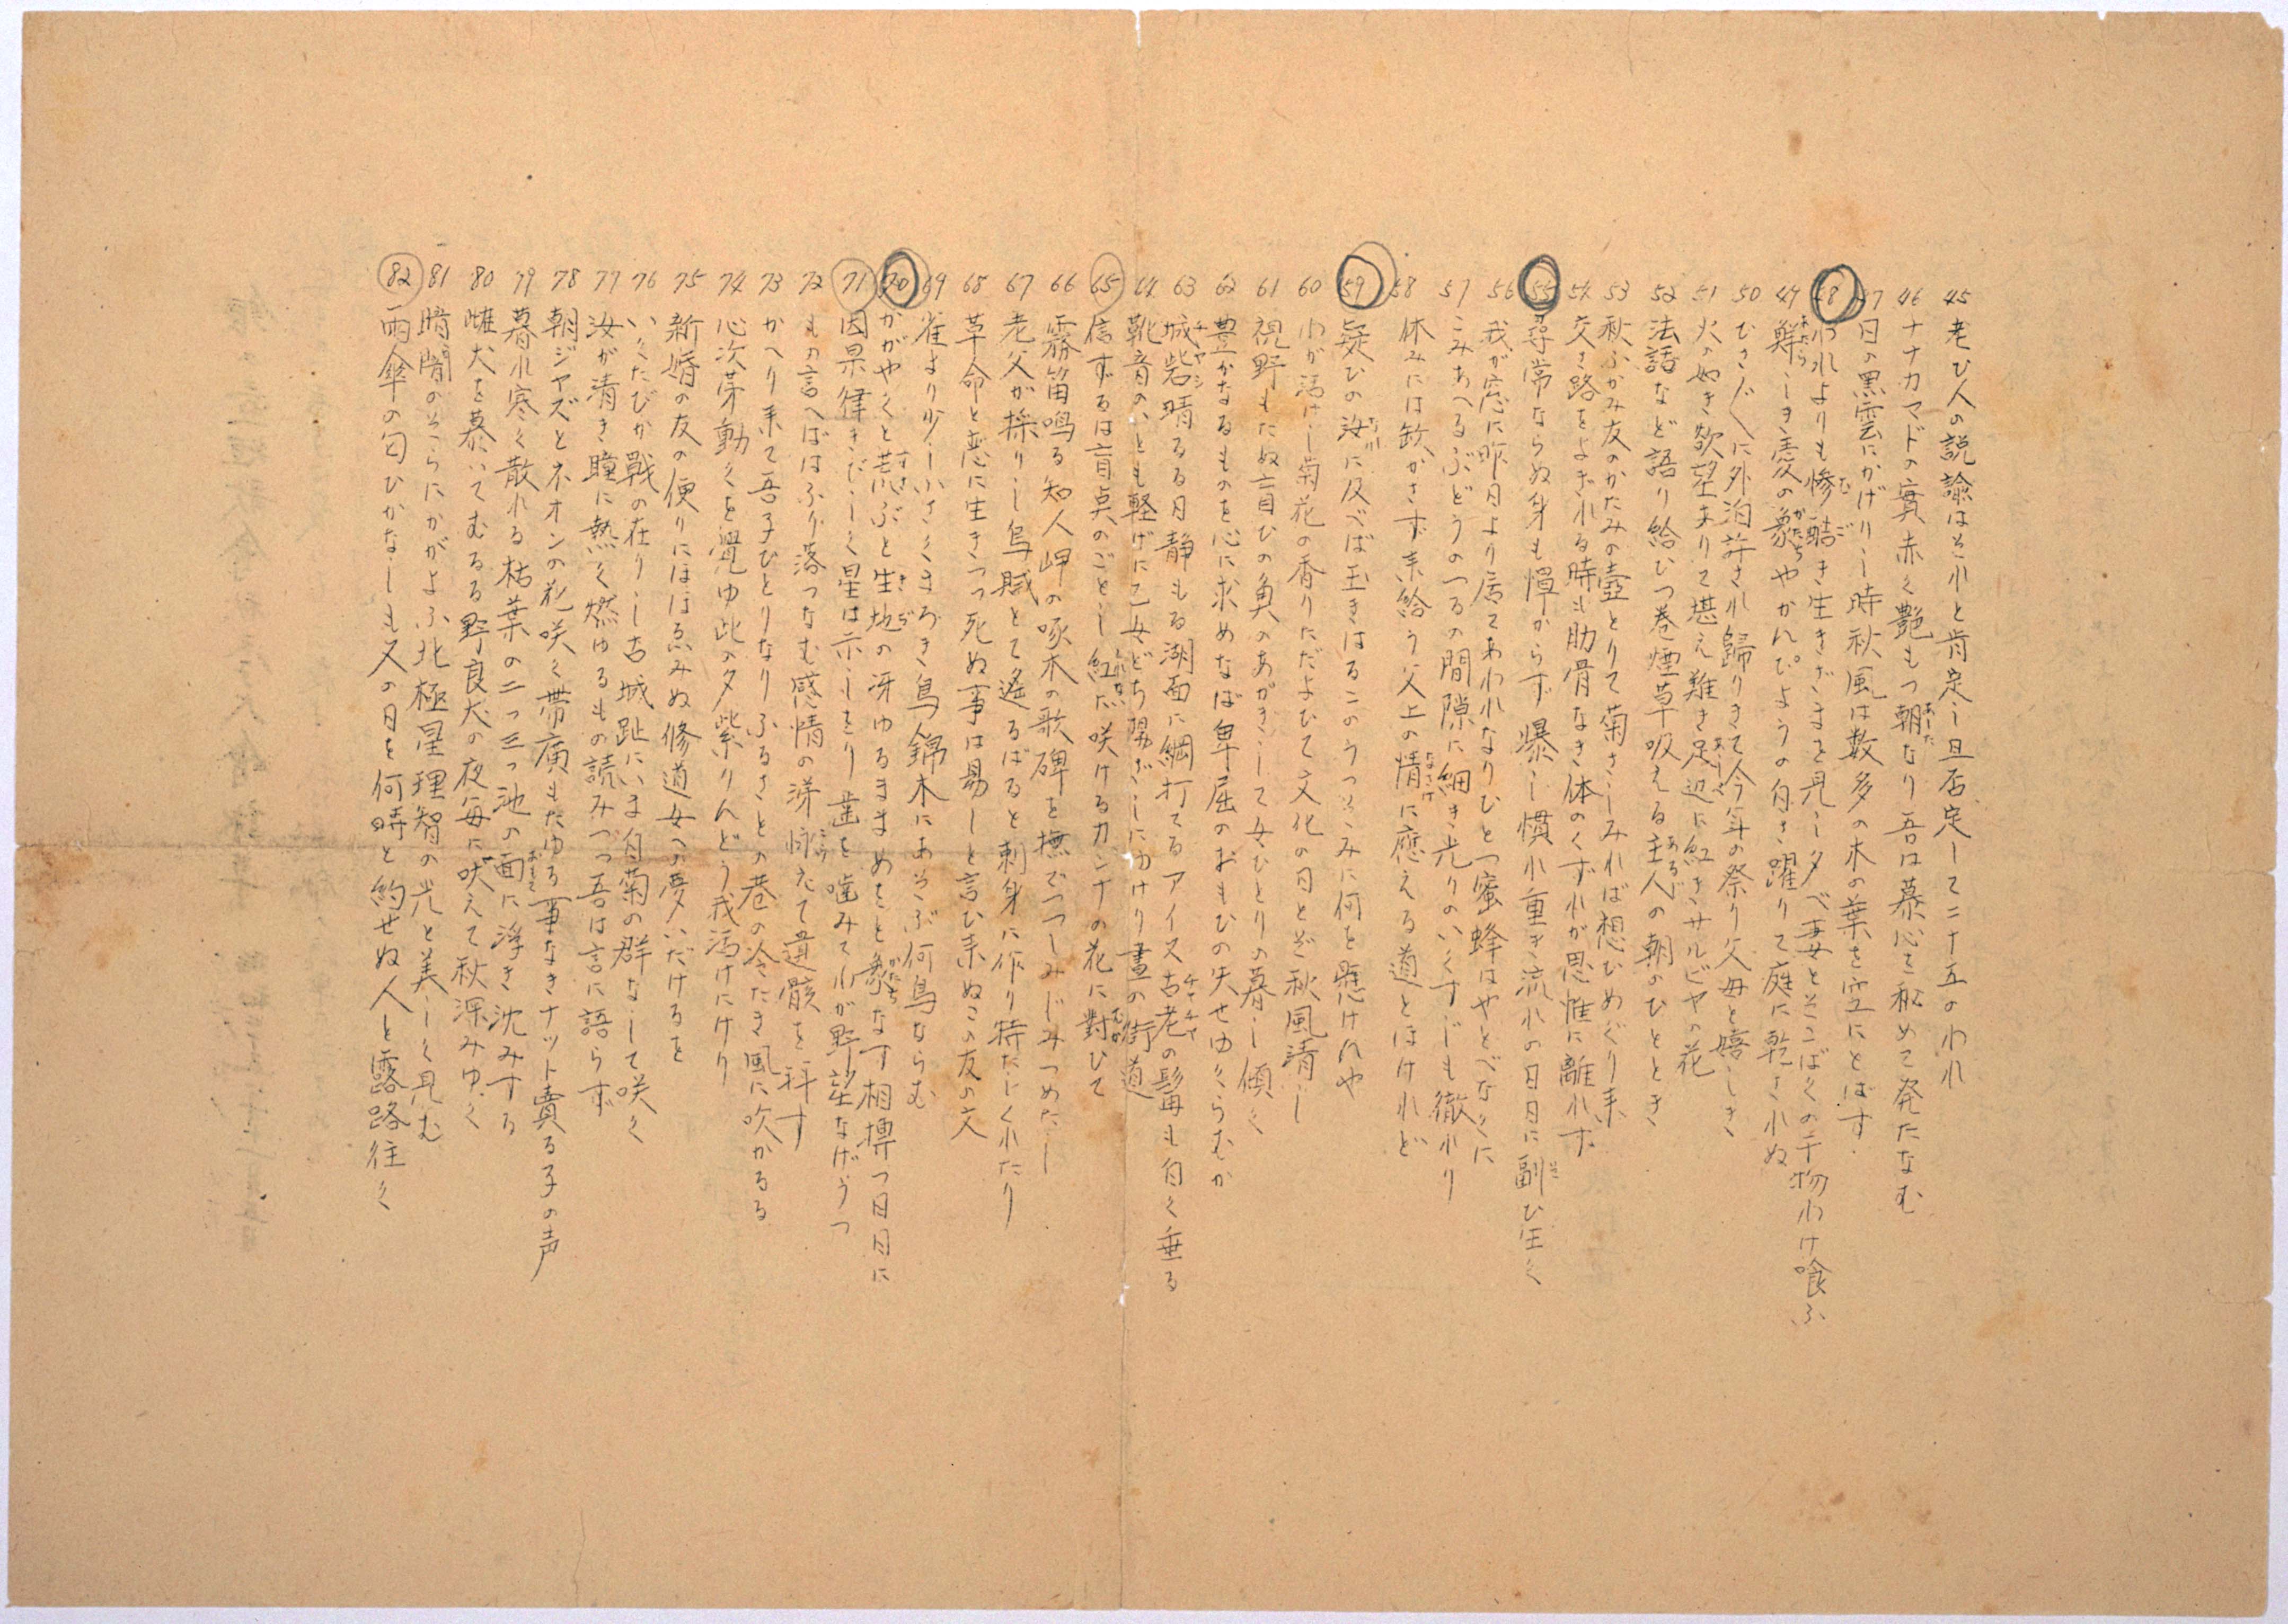 45 老ひ人の説諭はそれと肯定し且否定して二十五のわれ
46 ナナカマドの實赤く艶もつ朝なり吾は慕心を秘めて発たなむ
47 日の黒雲にかげりし時秋風は数多の木の葉を空にとばす
48 われよりも惨酷き生きざまを見し夕べ妻とそこばくの干物わけ喰ふ
49 鮮らしき憂の象やかんぴようの白さ躍りて庭に乾されぬ
50 ひさびさに外泊許され歸りきて今年の祭り父母と嬉しき
51 火の如き欲望ありて堪え難き足辺に紅きサルビヤの花
52 法話など語り給ひつ巻煙草吸える主人の朝のひととき
53 秋ふかみ友のかたみの壺とりて菊さしみれば想ひめぐり来
54 交さ路をよぎれる時も肋骨なき体のくずれが思惟に離れず
55 尋常ならぬ身も憚からず爆し慣れ重き流れの日日に副ひ生く
56 我が窓に昨日より居てあわれなりひとつ蜜蜂はやとべなくに
57 こみあへるぶどうのつるの間隙に細き光りのいくすじも徹れり
58 休みには欽かさず来給う父上の情に應える道とほけれど
59 疑ひの汝に及べば玉きはるこのうつそみに何を懸けんや
60 わが活けし菊花の香りただよひて文化の日とぞ秋風清し
61 視野もたぬ盲ひの魚のあがきして女ひとりの暮し傾く
62 豊かなるものを心に求めなば卑屈のおもひの失せゆくらむか
63 城岩晴るる日静もる湖面に網打てるアイヌ古老の髯も白く垂る
64 靴音のいとも軽げに乙女どち陽ざしにゆけり晝の街道
65 信ずるは盲点のごとし紅た咲けるカンナの花に對ひて
66 霧笛鳴る知人岬の啄木の歌碑を撫でつつしみじみつめたし
67 老父が採りし烏賊とて遙るばると刺身に作り持たしくれたり
68 革命と恋に生きつつ死ぬ事は易しと言ひ来ぬこの友の文
69 雀より少し小さくまろき鳥錦木にあそぶ何鳥ならむ
70 かがやくと荒ぶと生地の冴ゆるままめをと象なす相搏つ日日に
71 因果律きびしく星は示しをり歯を噛みてわが野望なげうつ
72 もの言へばはふり落つなむ感情の涕怺えて遺骸を拝す
73 かへり来て吾子ひとりなりふるさとの巷の冷たき風に吹かるる
74 心次芽動くを覺ゆ此の夕紫りんどう我活けにけり
75 新婚の友の便りにほほゑみぬ修道女への夢いだけるを
76 いくたびか戰の在りし古城趾にいま白菊の群なして咲く
77 汝が清き瞳に熱く燃ゆるもの読みつつ吾は言に語らず
78 朝ジャズとネオンの花咲く帯廣もたゆる事なきナット賣る子の声
79 暮れ寒く散れる枯葉の二つ三つ池の面に浮き沈みする
80 雌犬を慕いてむるる野良犬の夜毎に吠えて秋深みゆく
81 暗闇のそらにかがよふ北極星理智の光と美しく見む
82 雨傘の匂ひかなしも又の日を何時と約せぬ人と露路往く